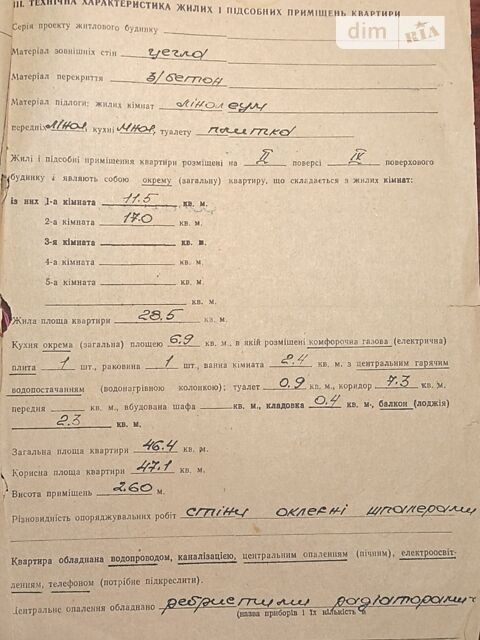 III. ТЕХНІЧНА ХАРАКТЕРИСТИКА ЖИЛИХ І ПІДСОБНИХ ПРИМІЩЕНЬ КВАРТИРИ
dim RIA
Серія проекту житлового будинку
Матеріал зовнішніх стін цегла
Матеріал перекриття з/бетон
Матеріал підлоги: жилих кімнат лінолеум
передніх лінол, кухні лінол, туалету плитка
Жилі і підсобні приміщення квартири розміщені на II поверсі IV поверхового
будинку і являють собою окрему (загальну) квартиру, що складається з жилих кімнат:
із них 1-а кімната 11.5 кв. м.
2-а кімната 17.0 кв. м.
3-я кімната кв. м.
4-а кімната кв. м.
5-а кімната кв. м.
кв. м.
Жила площа квартири 28.5 кв. м.
Кухня окрема (загальна) площею 6.9 кв. м., в якій розміщені комфорочна газова (електрична)
плита 1 шт., раковина 1 шт., ванна кімната 2.4 кв. м. з центральним гарячим
водопостачанням (водонагрівною колонкою); туалет 0.9 кв. м., коридор 7.3 кв. м.
передня кв. м., вбудована шафа кв. м., кладовка 0.4 кв. м., балкон (лоджія)
2.3 кв. м.
Загальна площа квартири 46.4 кв. м.
Корисна площа квартири 47.1 кв. м.
Висота приміщень 2.60 м.
Різновидність опоряджувальних робіт стіни оклеєні шпалерами
Квартира обладнана водопроводом, каналізацією, центральним опаленням (пічним), електроосвіт-
ленням, телефоном (потрібне підкреслити).
Центральне опалення обладнано ребристими радіаторами
(назва приборів і їх кількість)